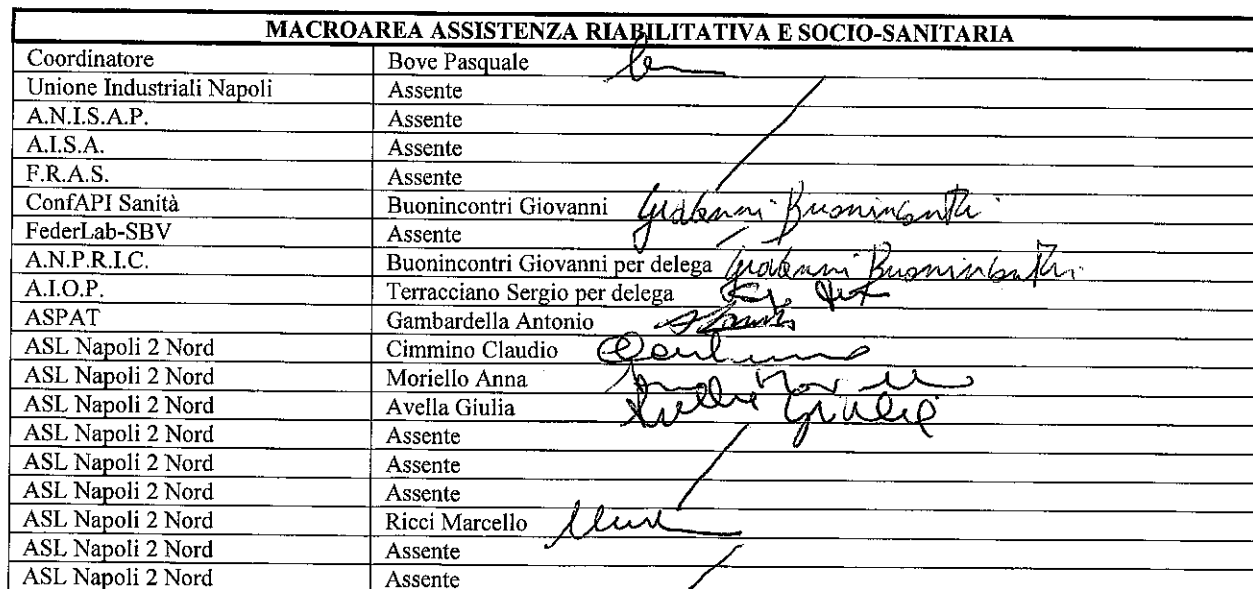 MACROAREA ASSISTENZA RIABILITATIVA E SOCIO-SANITARIA
Coordinatore Bove Pasquale
Unione Industriali Napoli Assente
A.N.I.S.A.P. Assente
A.I.S.A. Assente
F.R.A.S. Assente
ConfAPI Sanità Buonincontri Giovanni Giovanni Buonincontri
FederLab-SBV Assente
A.N.P.R.I.C. Buonincontri Giovanni per delega Giovanni Buonincontri
A.I.O.P. Terracciano Sergio per delega
ASPAT Gambardella Antonio
ASL Napoli 2 Nord Cimmino Claudio
ASL Napoli 2 Nord Moriello Anna
ASL Napoli 2 Nord Avella Giulia Avella Giulia
ASL Napoli 2 Nord Assente
ASL Napoli 2 Nord Assente
ASL Napoli 2 Nord Assente
ASL Napoli 2 Nord Ricci Marcello
ASL Napoli 2 Nord Assente
ASL Napoli 2 Nord Assente